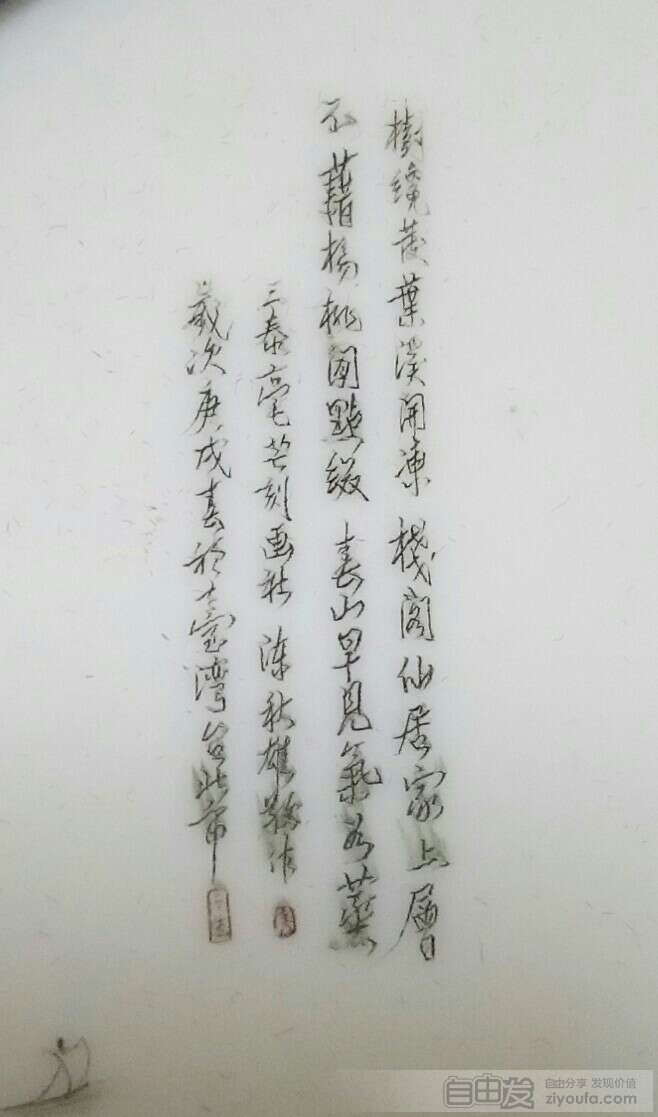 樹繞叢葉溪開凍 棧閣仙居家上層
不藉楊桃閑點綴 春山早見氣如蒸
三泰毫芒刻画社 陳秋雄
歲次庚戌春於臺灣台北市
自由发
自由分享 发现价值
ziyoufa.com